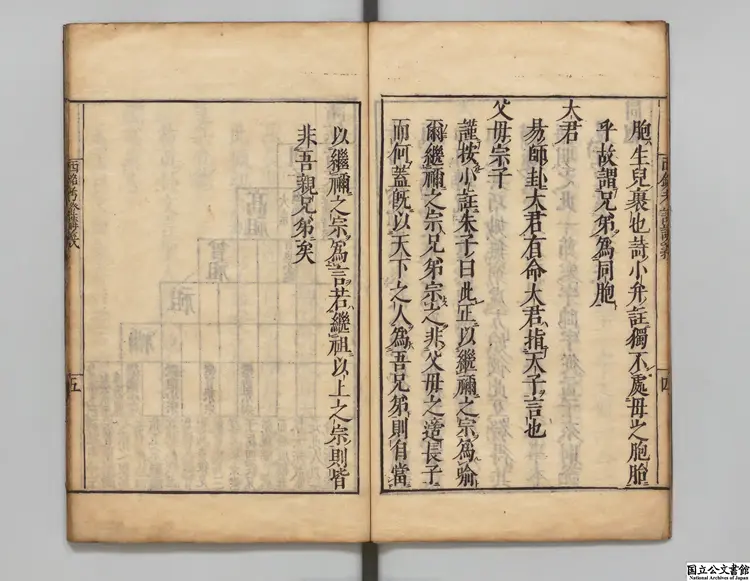 胞生兒裹也詩小弁註獨不處母之胞胎
乎故謂兄弟為同胞
大君
易師卦大君有命大君指天子言也
父母宗子
謹按小註朱子曰此正以繼禰之宗為喻
爾繼禰之宗兄弟宗之非父母之適長子
而何蓋既以天下之人為吾兄弟則自當
四
以繼禰之宗為言若繼祖以上之宗則皆
非吾親兄弟矣
西銘考證講義
五
国立公文書館
National Archives of Japan